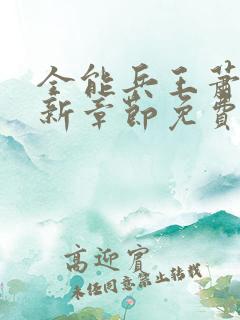 全能兵王萧
新章节免费
高迎宾
未经同意禁止转载